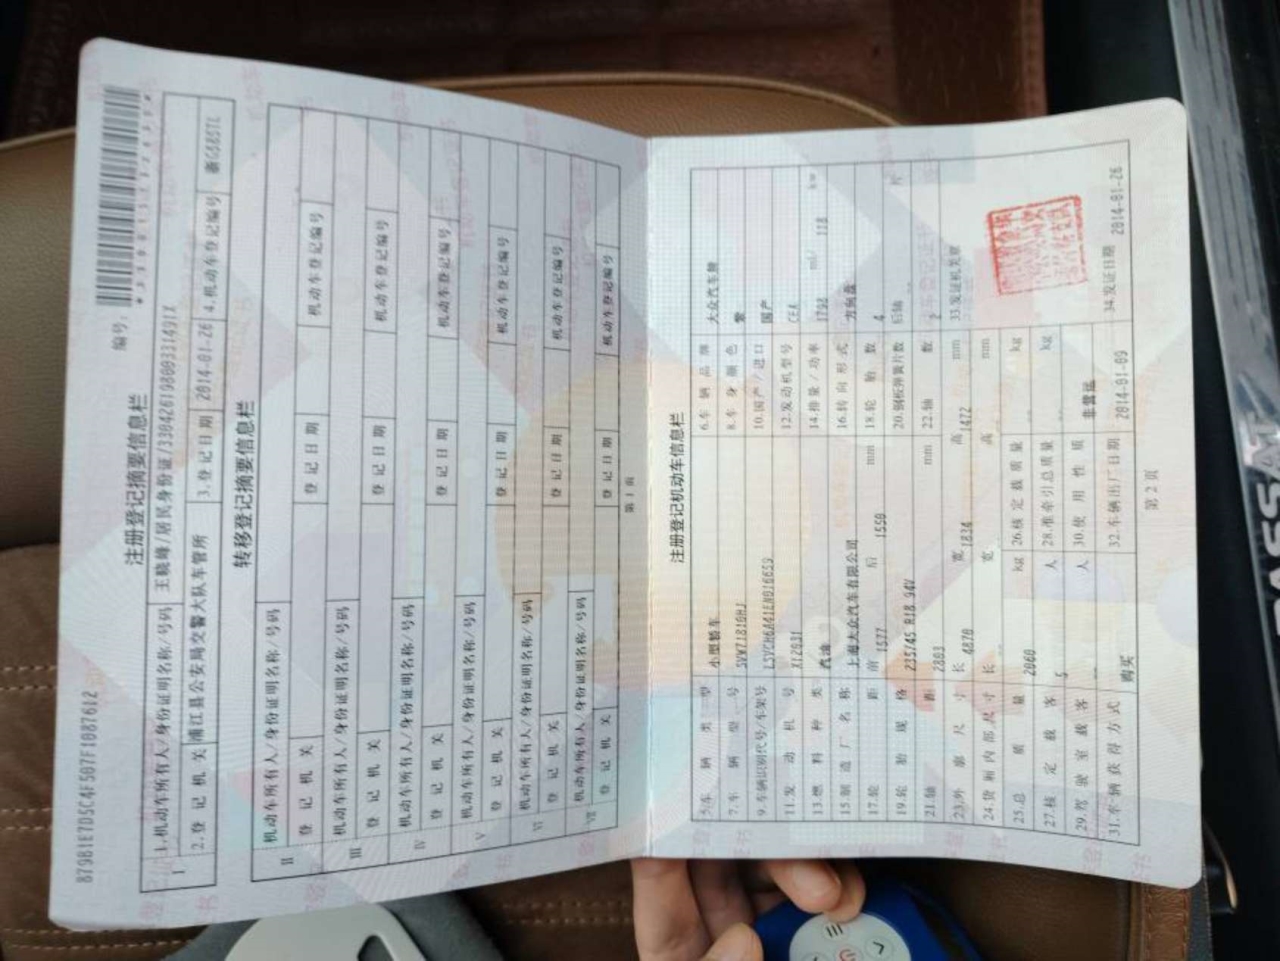 879B1E7D5C4F507F1087612
编号:
注册登记摘要信息栏
I 1.机动车所有人/身份证明名称/号码 王晓峰/居民身份证/
2.登记机关 浦江县公安局交警大队车管所 3.登记日期 2014-01-26 4.机动车登记编号
转移登记摘要信息栏
II 机动车所有人/身份证明名称/号码
登记机关 登记日期 机动车登记编号
III 机动车所有人/身份证明名称/号码
登记机关 登记日期 机动车登记编号
IV 机动车所有人/身份证明名称/号码
登记机关 登记日期 机动车登记编号
V 机动车所有人/身份证明名称/号码
登记机关 登记日期 机动车登记编号
VI 机动车所有人/身份证明名称/号码
登记机关 登记日期 机动车登记编号
VII 机动车所有人/身份证明名称/号码
登记机关 登记日期 机动车登记编号
第 1 页
注册登记机动车信息栏
5.车辆类型 小型轿车 6.车辆品牌 大众汽车牌
7.车辆型号 SVW71810HJ 8.车身颜色 紫
9.车辆识别代号/车架号 10.国产/进口 国产
11.发动机号 12.发动机型号 CEA
13.燃料种类 汽油 14.排量/功率 1798 ml/ 118 kw
15.制造厂名称 上海大众汽车有限公司 16.转向形式 方向盘
17.轮距 前 1577 后 1550 mm 18.轮胎数 4
19.轮胎规格 235/45 R18 94V 20.钢板弹簧片数 后轴 片
21.轴距 2803 mm 22.轴数 2
23.外廓尺寸 长 4870 宽 1834 高 1472 mm 33.发证机关章
24.货厢内部尺寸 长 宽 高 mm
25.总质量 2060 kg 26.核定载质量 kg
27.核定载客 5 人 28.准牵引总质量 kg
29.驾驶室载客 -- 人 30.使用性质 非营运
31.车辆获得方式 购买 32.车辆出厂日期 2014-01-09 34.发证日期 2014-01-26
第 2 页